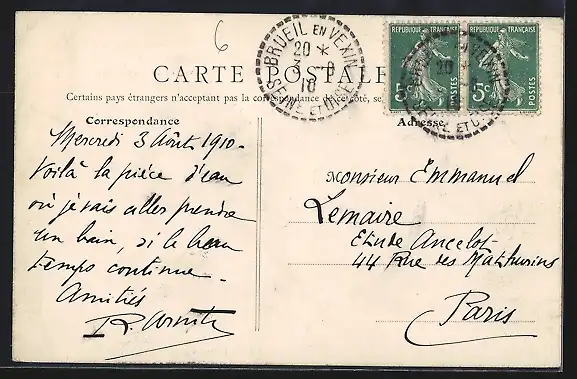 6
BRUEIL EN VEXIN
20 *
3 - 8
10
SEINE ET OISE
REPUBLIQUE FRANÇAISE
POSTES
5c
REPUBLIQUE FRANÇAISE
POSTES
5c
CARTE POSTALE
Certains pays étrangers n'acceptant pas la correspondance de ce côté, se
Correspondance
Adresse
Mercredi 3 Août 1910.
Voilà la pièce d'eau
où je vais aller prendre
un bain, si le beau
temps continue.
Amitiés
R.
Monsieur Emmanuel
Lemaire
Etude Ancelot
44 Rue des Mathurins
Paris